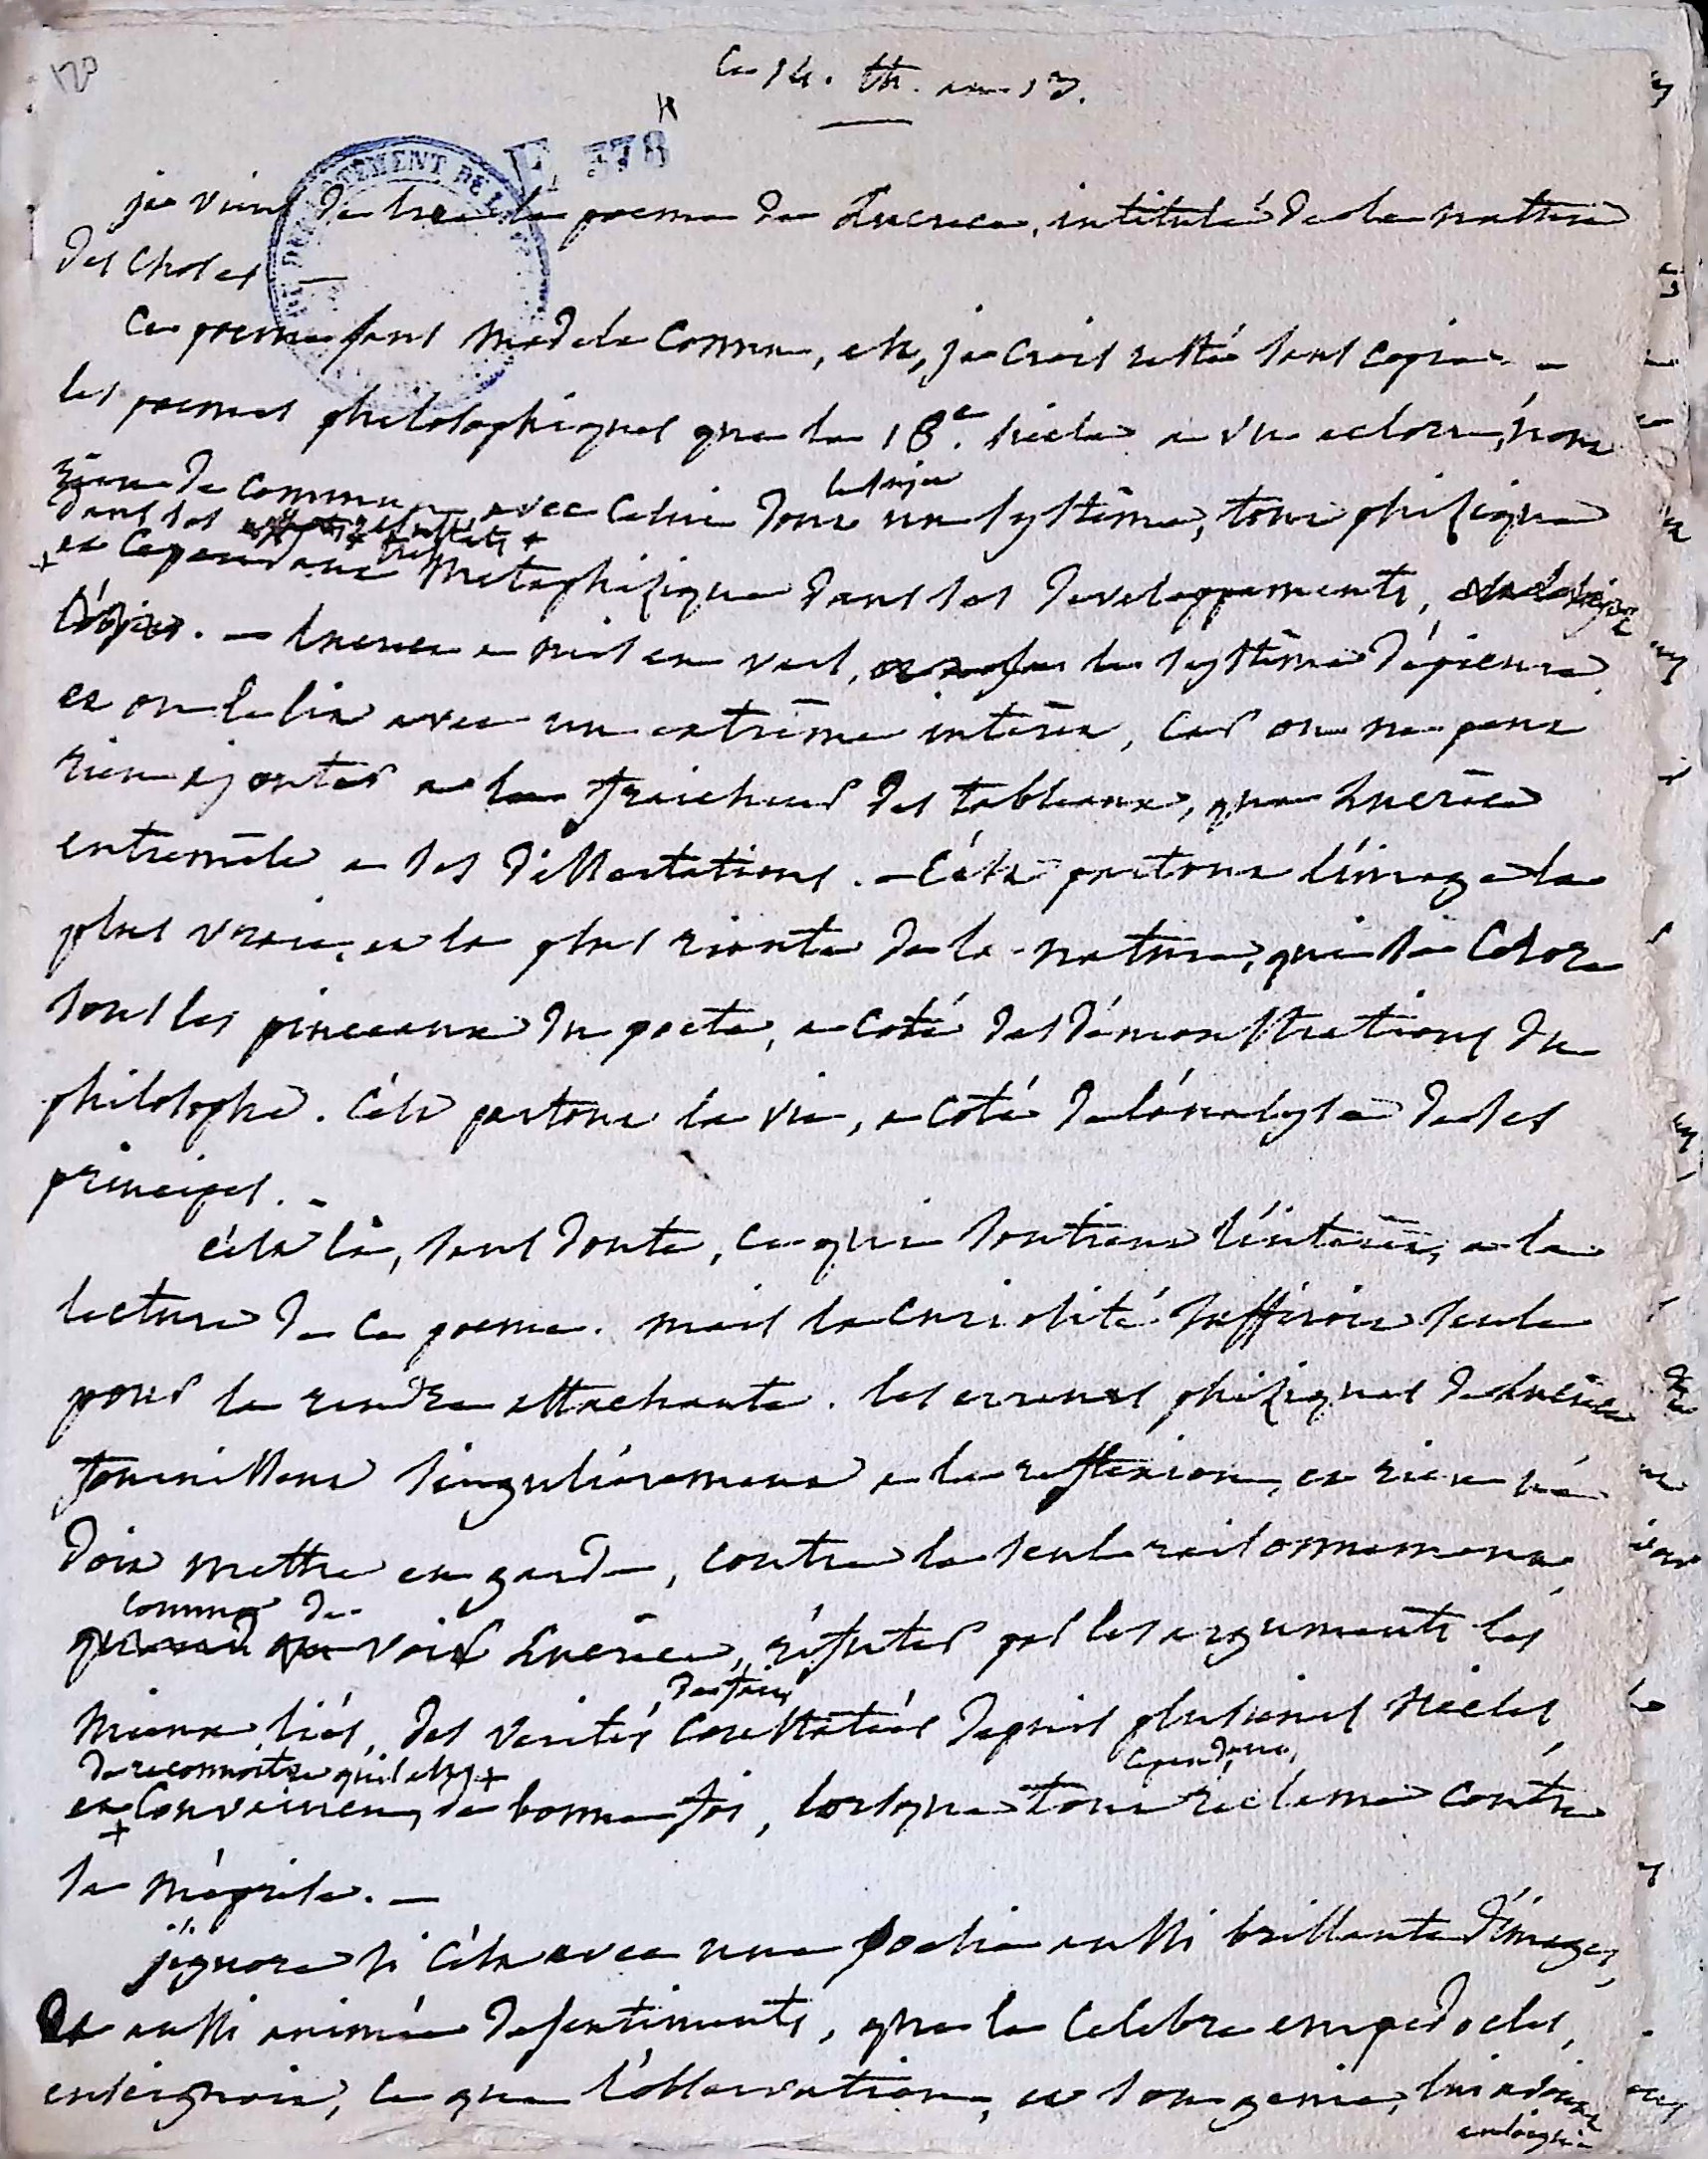 120
Ce 14. th. an 13.
E 378
je viens de lire le poeme de Lucrece, intitulé de la nature
des choses —
Ce poeme sans modele connu, est, je crois resté sans copie. —
les poemes philosophiques que le 18e. siecle a vu eclore, n'ont
rien de commun avec celui dont un systême, tout phisique
le sujet
dans ses resultats +
+ et cependant tres metaphisique dans ses developpements,
l'objet. — Lucrece a mis en vers, le systême d'épicure,
et on le lit avec un extrême intérêt, car on ne peut
rien ajouter a la fraicheur des tableaux, que Lucrèce
entremêle a ses dissertations. — C'est partout l'image la
plus vraie, et la plus riante de la nature, qui se colore
sous les pinceaux du poete, a coté des démonstrations du
philosophe. C'est partout la vie, a coté de l'analyse de ses
principes. —
c'est là, sans doute, ce qui soutient l'intérêt, a la
lecture de ce poeme. mais la curiosité suffiroit seule
pour la rendre attachante. les erreurs phisiques de Lucrèce
fournissent singulièrement a la reflexion, et rien ne
doit mettre en garde, contre le seul raisonnement,
comme de
voir Lucrèce, réfuter par les arguments les
mieux liés, des verités constatées depuis plusieurs siècles,
de reconnoitre qu'il est +
et convaincu, de bonne foi, lorsque tout reclame contre
cependant,
+
sa méprise. —
j'ignore si c'est avec une poesie aussi brillante d'images,
et aussi animée de sentiments, que le celebre empedocles,
enseignoit, ce que l'observation, et son genie, lui